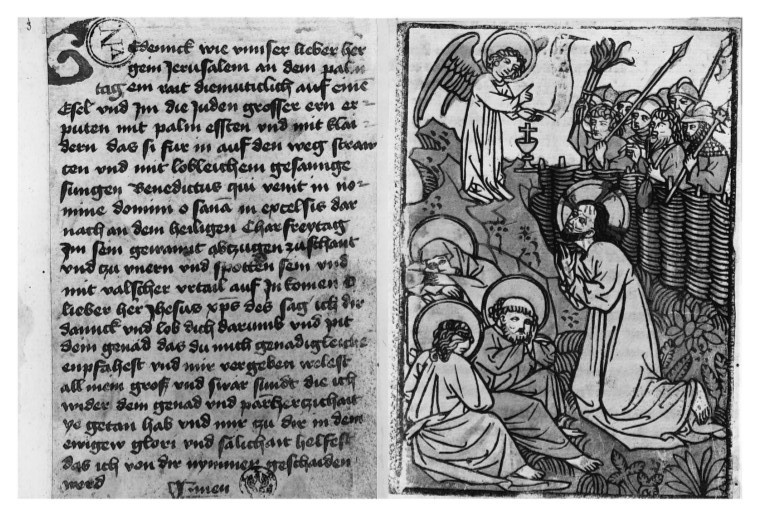 Gedennck wie vnnser lieber her
gein Jerusalem an dem palm
tag ein rait diemuticlich auf eine
Esel vnd Im die Juden grosser ern er
puten mit palm essten vnd mit klai
dern das si fur in auf den weg straw
ten vnd mit lobleichem gesannge
sungen Benedictus qui venit in no
mine domini o sana in excelsis dar
nach an dem heiligen Charfreytag
Im sein gewannt abzugen zuschant
vnd zu vnern vnd spotten sein vnd
mit valscher vrtail auf In komen O
lieber her Jhesus xps des sag ich dir
dannck vnd lob dich darumb vnd pit
dein genad das du mich genadigleiche
enpfahest vnd mir vergeben welest
all mein groß vnd swar sundt die ich
wider dein genad vnd parherczichait
ye getan hab vnd mir zu dir in dein
ewigew glori vnd sälichait helfest
das ich von dir nymmer geschaiden
werd Amen
NA